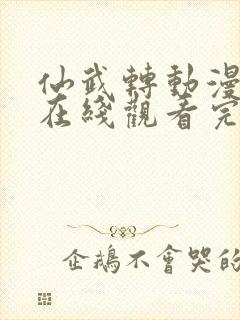 仙武轉動漫
在綫觀看完
企鵝不會哭的